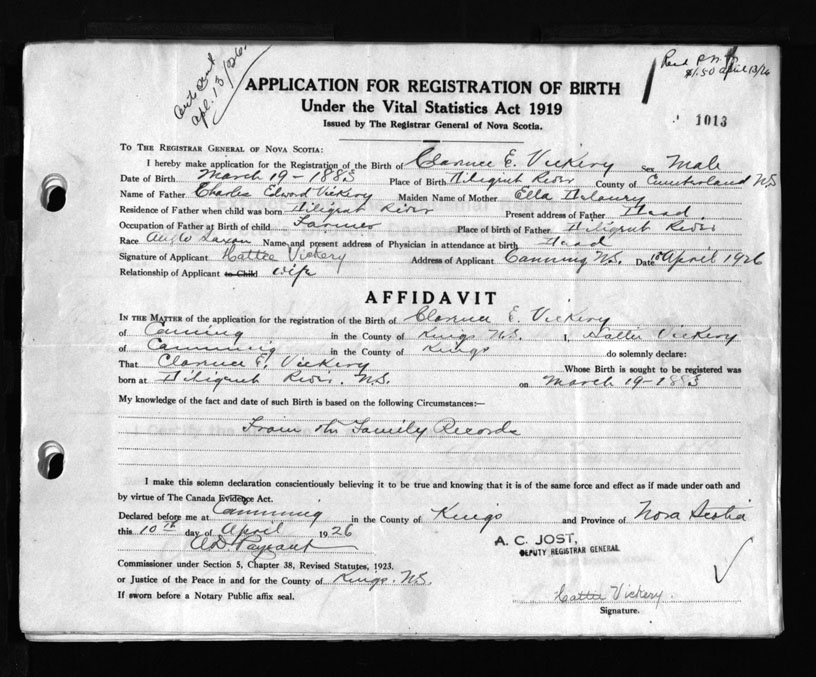 Cert Sent
Apl. 13/26.
Recd P.N.
$1.50 April 13/26
APPLICATION FOR REGISTRATION OF BIRTH
Under the Vital Statistics Act 1919
Issued by The Registrar General of Nova Scotia.
1013
TO THE REGISTRAR GENERAL OF NOVA SCOTIA:
I hereby make application for the Registration of the Birth of Clarence E. Vickery Sex Male
Date of Birth March 19-1883 Place of Birth Diligent River County of Cumberland NS
Name of Father Charles Edward Vickery Maiden Name of Mother Ella
Residence of Father when child was born Diligent River Present address of Father Dead
Occupation of Father at Birth of child Farmer Place of birth of Father Diligent River
Race Anglo Saxon Name and present address of Physician in attendance at birth Dead
Signature of Applicant Hattie Vickery Address of Applicant Canning N.S. Date 10 April 1926
Relationship of Applicant to Child wife
AFFIDAVIT
IN THE MATTER of the application for the registration of the Birth of Clarence E. Vickery
of Canning in the County of Kings N.S. I, Hattie Vickery
of Canning in the County of Kings do solemnly declare:
That Clarence E. Vickery Whose Birth is sought to be registered was
born at Diligent River, N.S. on March 19-1883
My knowledge of the fact and date of such Birth is based on the following Circumstances:—
From the Family Records
I make this solemn declaration conscientiously believing it to be true and knowing that it is of the same force and effect as if made under oath and
by virtue of The Canada Evidence Act.
Declared before me at Canning in the County of Kings and Province of Nova Scotia
this 10th day of April 1926
A. C. JOST,
DEPUTY REGISTRAR GENERAL
Commissioner under Section 5, Chapter 38, Revised Statutes, 1923.
or Justice of the Peace in and for the County of Kings. N.S.
If sworn before a Notary Public affix seal.
Hattie Vickery.
Signature.